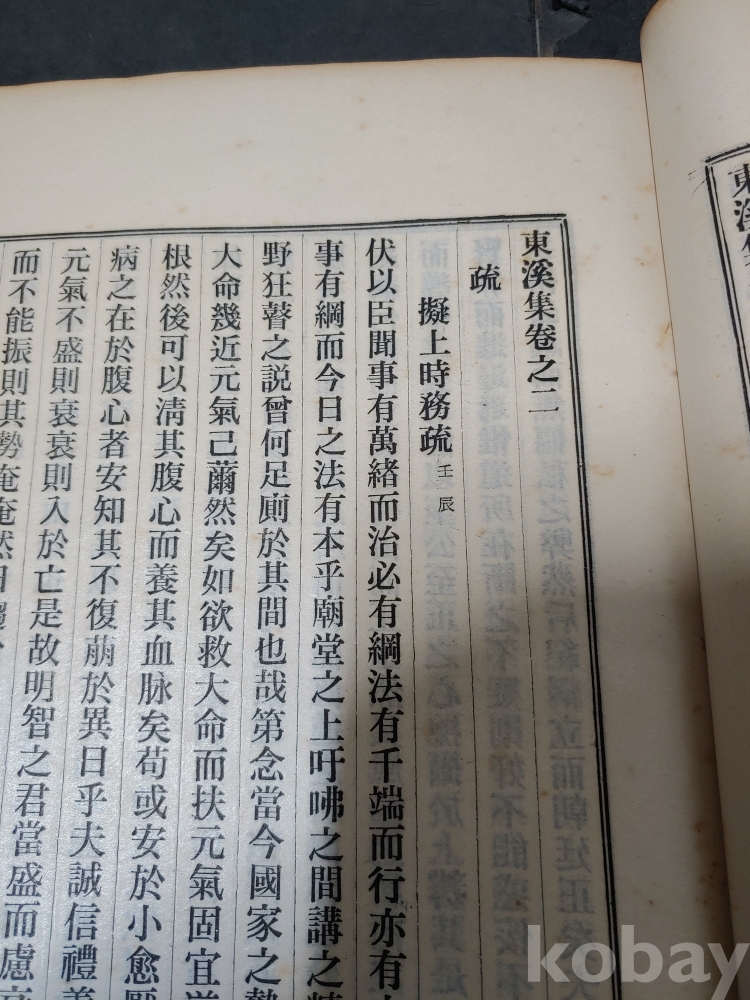 東溪集卷之二
疏
擬上時務疏 壬辰
伏以臣聞事有萬緒而治必有綱法有千端而行亦有
事有綱而今日之法有本乎廟堂之上吁咈之間講之
野狂瞽之説曾何足廁於其間也哉第念當今國家之
大命幾近元氣已薾然矣如欲救大命而扶元氣固宜
根然後可以淸其腹心而養其血脉矣苟或安於小愈
病之在於腹心者安知其不復萠於異日乎夫誠信禮
元氣不盛則衰衰則入於亡是故明智之君當盛而慮
而不能振則其勢奄奄然日
東溪
kobay